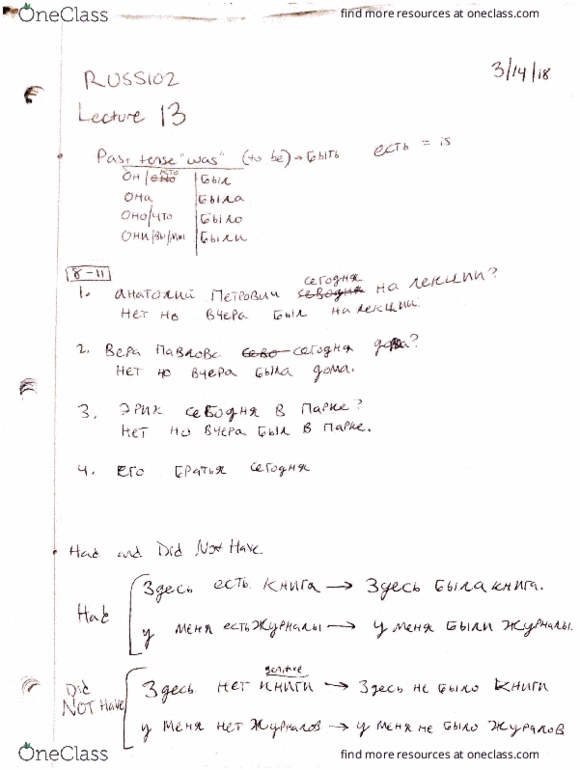 OneClass
find more resources at oneclass.com
3/14/18
RUSS102
Lecture 13
Past tense "was" (to be) → быть есть = is
он/кто был
она была
оно/что было
они/вы/мы были
8-11
сегодня
1. Анатолий Петрович на лекции?
Нет но вчера был на лекции.
2. Вера Павлова сегодня дома?
Нет но вчера была дома.
3. Эрик севодня в парке?
Нет но вчера был в парке.
4. Его братья сегодня
Had and Did Not Have
Had
Здесь есть книга → Здесь была книга.
У меня есть журналы → у меня были журналы.
genitive
Did NOT Have
Здесь нет книги → Здесь не было книги
у меня нет журналов → у меня не было журалов
OneClass
find more resources at oneclass.com